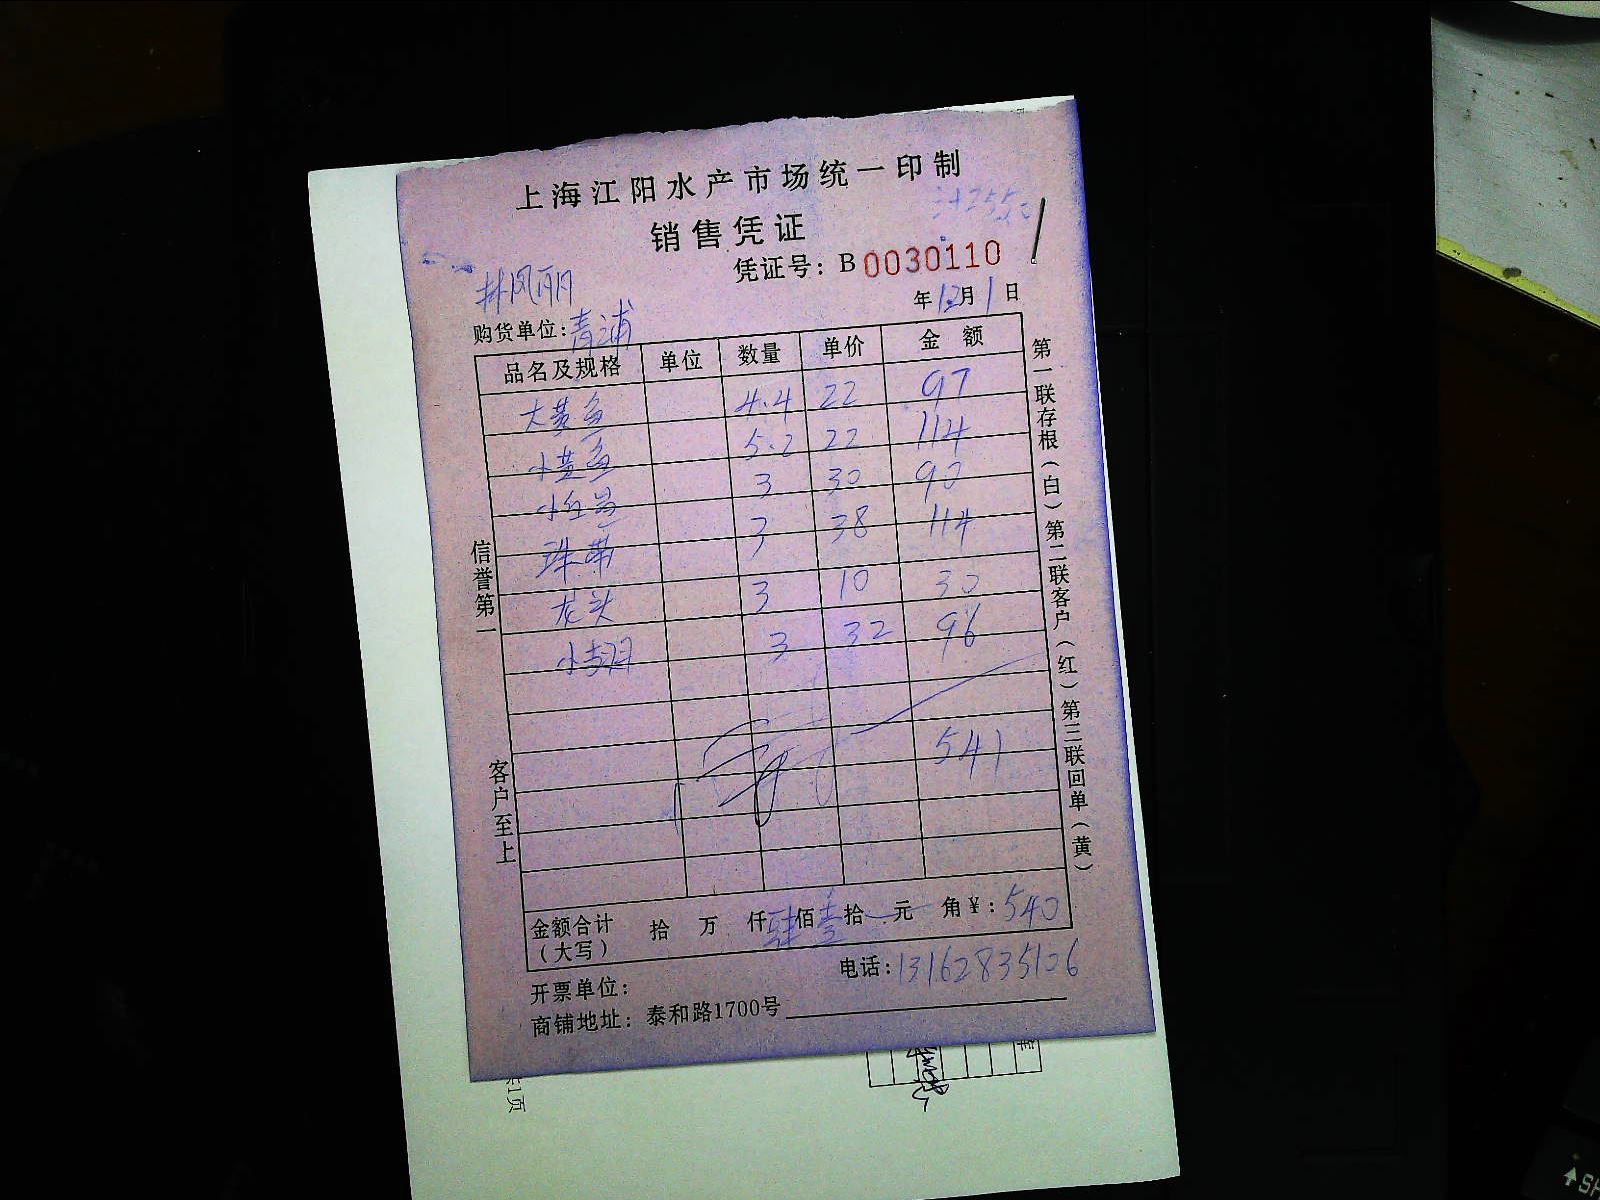 上海江阳水产市场统一印制
销售凭证
凭证号：B 0030110
林凤丽
年 12月 1 日
购货单位：青浦
品名及规格 单位 数量 单价 金额
大黄鱼 4.4 22 97
小黄鱼 5.2 22 114
小红 3 30 90
珠带 3 38 114
龙头 3 10 30
小 3 32 96
541
金额合计（大写） 拾 万 仟 肆 佰 壹 拾 元 角 ¥：540
电话：13162835106
开票单位：
商铺地址：泰和路1700号
信誉第一
客户至上
第一联存根（白）第二联客户（红）第三联回单（黄）
1页